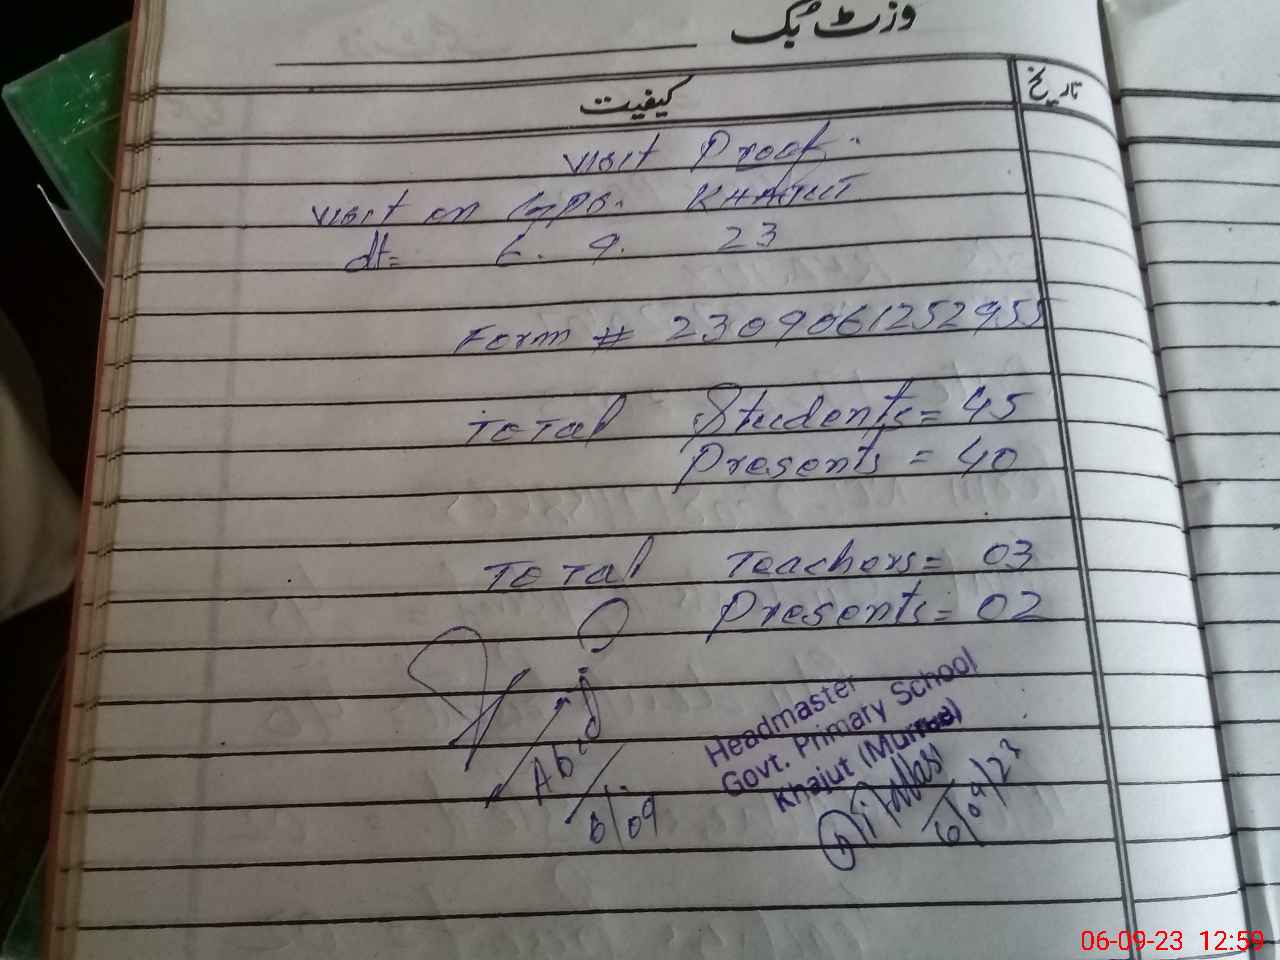 وزٹ بُک
تاریخ
کیفیت
Visit Proof.
Visit on Gps. KHAJUT
dt= 6. 9. 23
Form # 2309061252955
Total Students= 45
Presents = 40
Total Teachers= 03
Presents= 02
Abid
6/09
Headmaster
Govt. Primary School
Khajut (Murree)
6/09/23
06-09-23 12:59